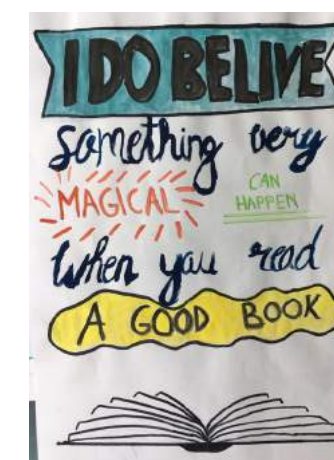 I DO BELIVE
something very
MAGICAL CAN HAPPEN
when you read
A GOOD BOOK